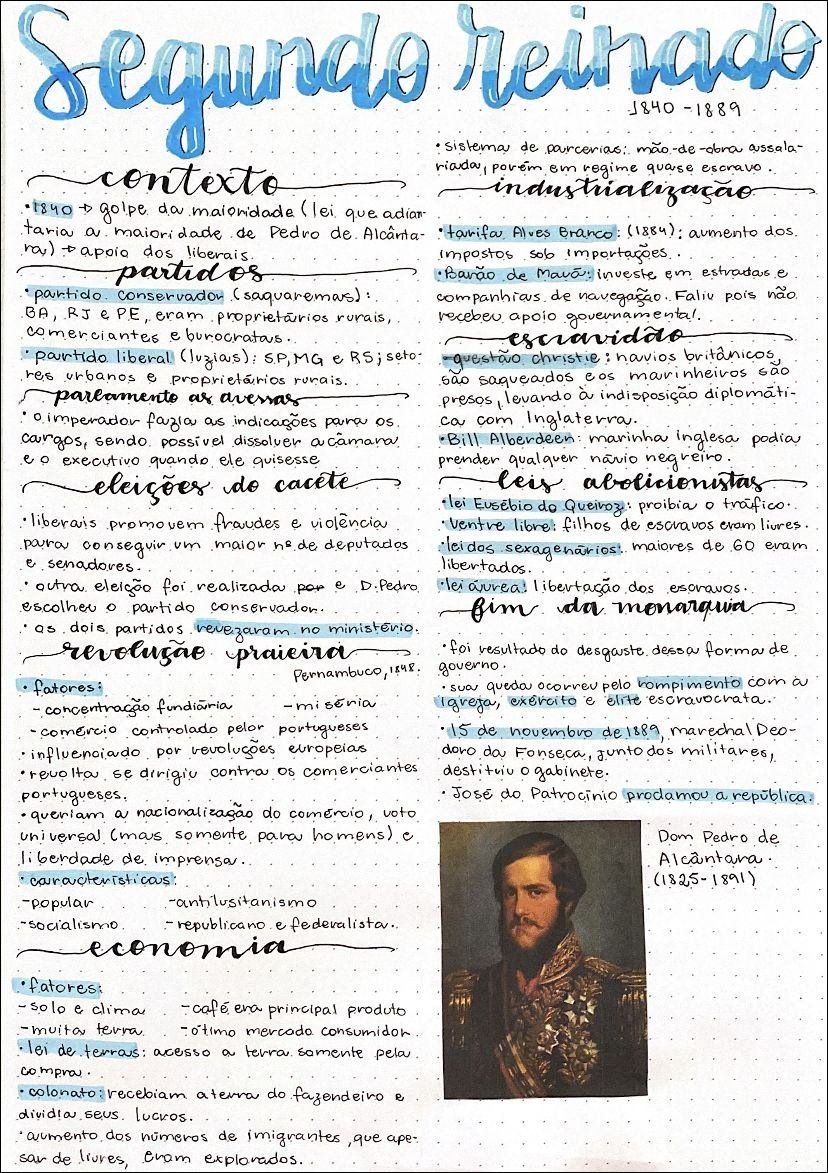 Segundo reinado
1840 - 1889
contexto
• 1840 → golpe da maioridade (lei que adian-
taria a maioridade de Pedro de Alcânta-
ra) → apoio dos liberais.
partidos
• partido conservador (saquaremas):
BA, RJ e PE, eram proprietários rurais,
comerciantes e burocratas.
• partido liberal (luzias): SP, MG e RS; seto-
res urbanos e proprietários rurais.
parlamento as avessas
• o imperador fazia as indicações para os
cargos, sendo possível dissolver a câmara
e o executivo quando ele quisesse
eleições do cacete
• liberais promovem fraudes e violência
para conseguir um maior nº de deputados
e senadores.
• outra eleição foi realizada por e D. Pedro
escolheu o partido conservador.
• os dois partidos revezaram no ministério.
revolução praieira
Pernambuco, 1848.
• fatores:
- concentração fundiária - miséria
- comércio controlado pelor portugueses
• influenciado por revoluções europeias
• revolta se dirigiu contra os comerciantes
portugueses.
• queriam a nacionalização do comércio, voto
universal (mais somente para homens) e
liberdade de imprensa.
• características:
- popular - antilusitanismo
- socialismo - republicano e federalista.
economia
• fatores:
- solo e clima - café era principal produto
- muita terra - ótimo mercado consumidor
• lei de terras: acesso a terra somente pela
compra.
• colonato: recebiam a terra do fazendeiro e
dividia seus lucros.
• aumento dos números de imigrantes, que ape-
sar de livres, eram explorados.
• sistema de parcerias: mão-de-obra assala-
riada, porém em regime quase escravo.
industrialização
• tarifa Alves Branco: (1884): aumento dos
impostos sob importações.
• Barão de Mauá: investe em estradas e
companhias de navegação. Faliu pois não
recebeu apoio governamental.
escravidão
- questão christie: navios britânicos,
são saqueados e os marinheiros são
presos, levando à indisposição diplomáti-
ca com Inglaterra.
• Bill Alberdeen: marinha inglesa podia
prender qualquer návio negreiro.
leis abolicionistas
• lei Eusébio do Queiroz: proibia o tráfico.
• Ventre libre: filhos de escravos eram livres.
• lei dos sexagenários: maiores de 60 eram
libertados.
• lei áurea: libertação dos escravos.
fim da monarquia
• foi resultado do desgaste dessa forma de
governo.
• sua queda ocorreu pelo rompimento com a
igreja, exército e elite escravocrata.
• 15 de novembro de 1889, marechal Deo-
doro da Fonseca, junto dos militares,
destituiu o gabinete.
• José do Patrocínio proclamou a república.
Dom Pedro de
Alcântara.
(1825-1891)